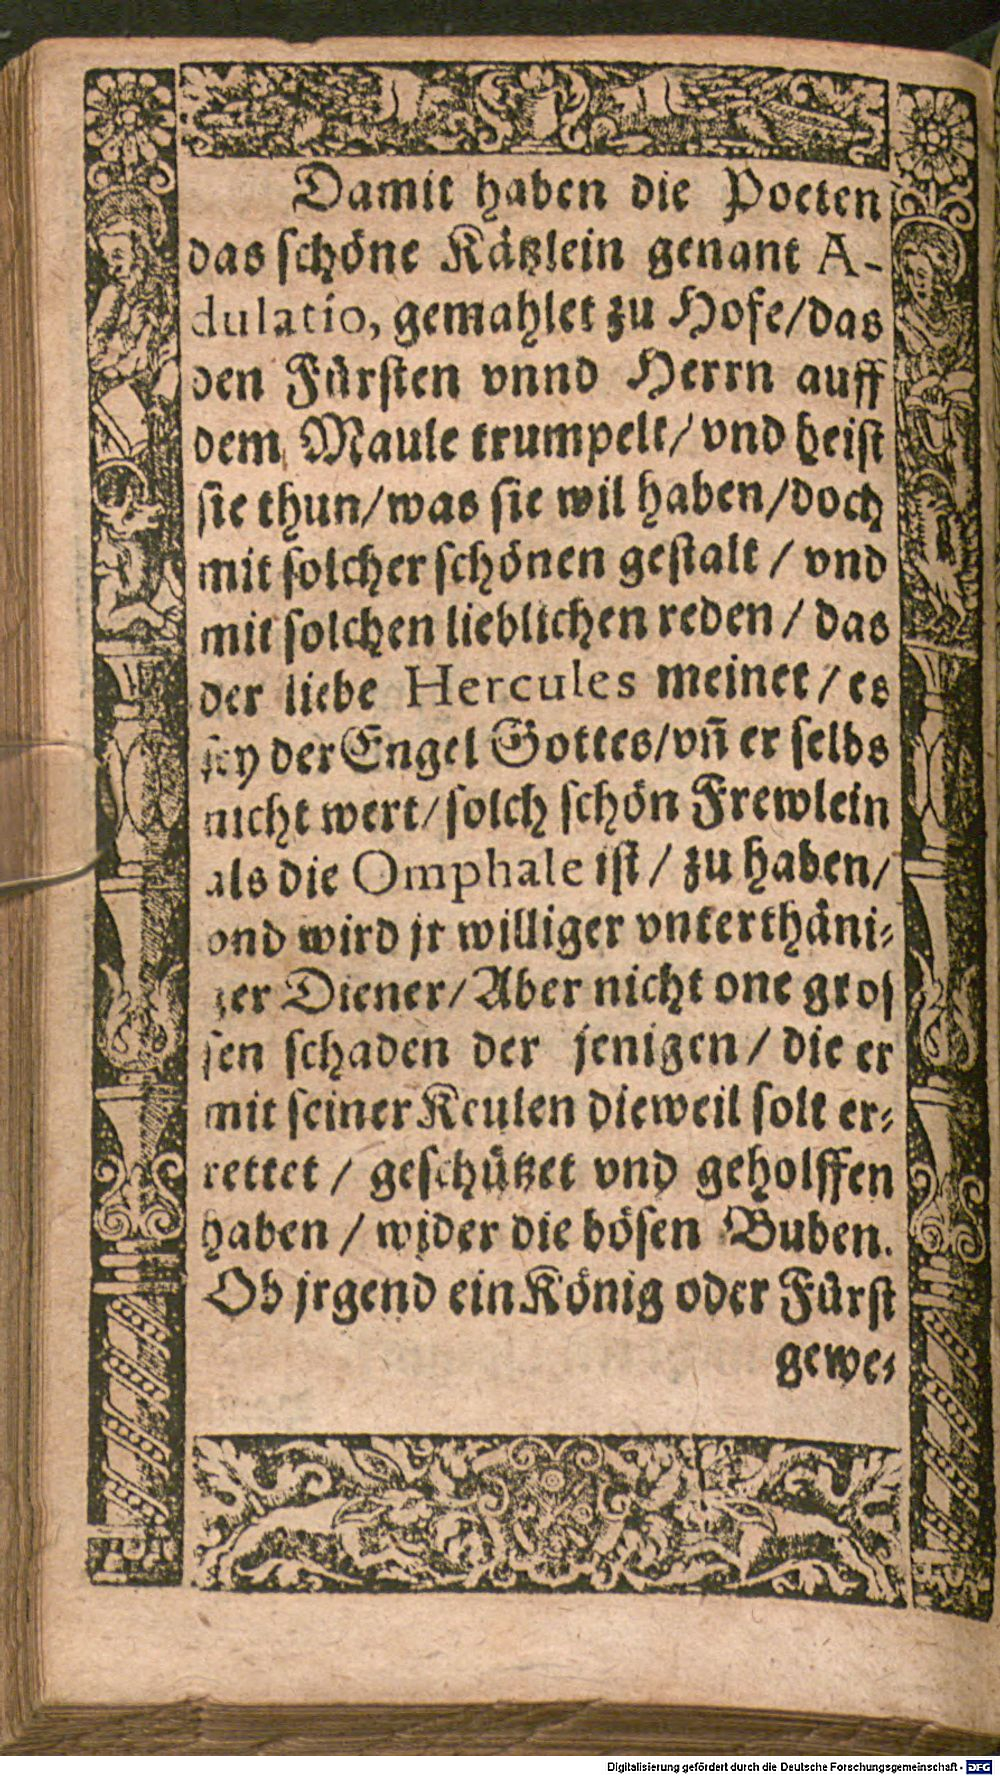 Damit haben die Poeten
das schöne Kätzlein genant A-
dulatio, gemahlet zu Hofe/das
den Fürsten vnnd Herrn auff
dem Maule trumpelt/vnd heist
sie thun/was sie wil haben/doch
mit solcher schönen gestalt / vnd
mit solchen lieblichen reden / das
der liebe Hercules meinet / es
sey der Engel Gottes/vñ er selbs
nicht wert/solch schön Frewlein
als die Omphale ist / zu haben/
vnd wird jr williger vnterthäni-
ger Diener/Aber nicht one gros
sen schaden der jenigen / die er
mit seiner Keulen dieweil solt er-
rettet / geschützet vnd geholffen
haben / wider die bösen Buben.
Ob jrgend ein König oder Fürst
gewe-
Digitalisierung gefördert durch die Deutsche Forschungsgemeinschaft - DFG